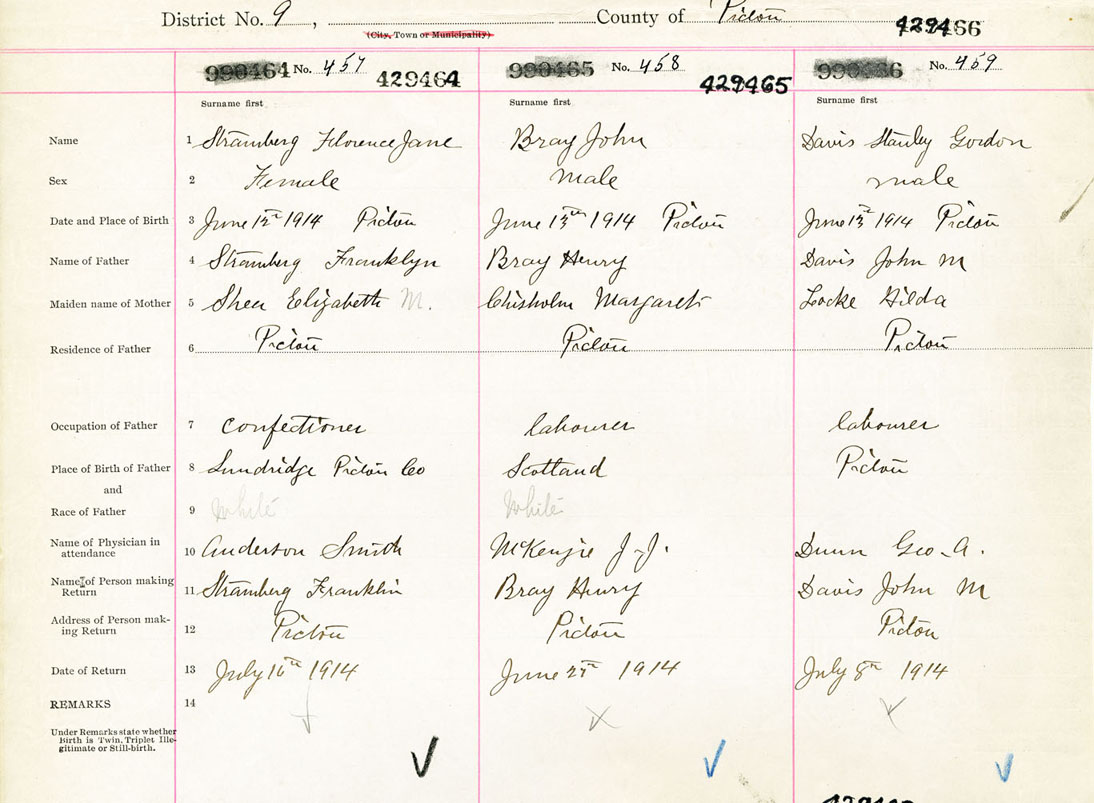 District No. 9, County of Pictou
(City, Town or Municipality)
429466
990464 No. 457 429464
990465 No. 458 429465
No. 459
Surname first Surname first Surname first
Name 1 Stramberg Florence Jane Bray John Davis Stanley Gordon
Sex 2 Female male male
Date and Place of Birth 3 June 1914 Pictou June 1914 Pictou June 1914 Pictou
Name of Father 4 Stramberg Franklyn Bray Henry Davis John M
Maiden name of Mother 5 Shea Elizabeth M. Chisholm Margaret Locke Hilda
Residence of Father 6 Pictou Pictou Pictou
Occupation of Father 7 Confectioner labourer labourer
Place of Birth of Father 8 Lundridge Pictou Co Scotland Pictou
and
Race of Father 9 White White
Name of Physician in
attendance 10 Anderson Smith McKenzie J. J. Dunn Geo. A.
Name of Person making
Return 11 Stramberg Franklin Bray Henry Davis John M
Address of Person mak-
ing Return 12 Pictou Pictou Pictou
Date of Return 13 July 16th 1914 June 1914 July 8th 1914
REMARKS 14
Under Remarks state whether
Birth is Twin, Triplet Ille-
gitimate or Still-birth.